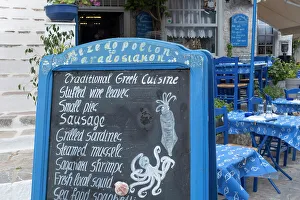 Mezedopolion
Paradosiakon
Traditional Greek Cuisine
Stuffed wine leaves
Small pie
Sausage
Grilled sardines
Steamed mussels
Saganaki shrimps
Fresh local squid
Sea food spaghetti